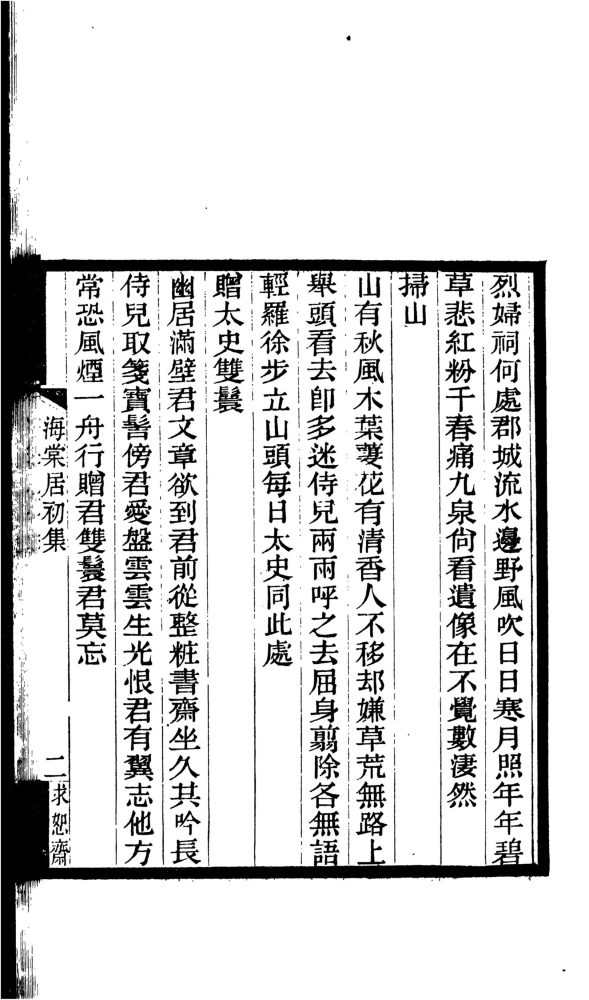 烈婦祠何處郡城流水邊野風吹日日寒月照年年碧
草悲紅粉千春痛九泉尙看遺像在不覺數淒然
掃山
山有秋風木葉萋花有清香人不移却嫌草荒無路上
舉頭看去卽多迷侍兒兩兩呼之去屈身翦除各無語
輕羅徐步立山頭每日太史同此處
贈太史雙鬟
幽居滿壁君文章欲到君前從整粧書齋坐久其吟長
侍兒取箋寶髻傍君愛盤雲雲生光恨君有翼志他方
常恐風煙一舟行贈君雙鬟君莫忘
海棠居初集
二
求恕齋